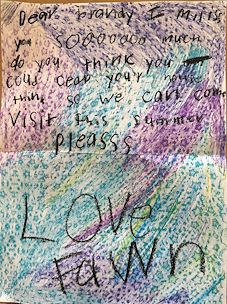 Dear brandy I miss
you soooooo much
do you think you
cous cear your
thing so we can come
visit this summer
pleasss
LOve
FaWn